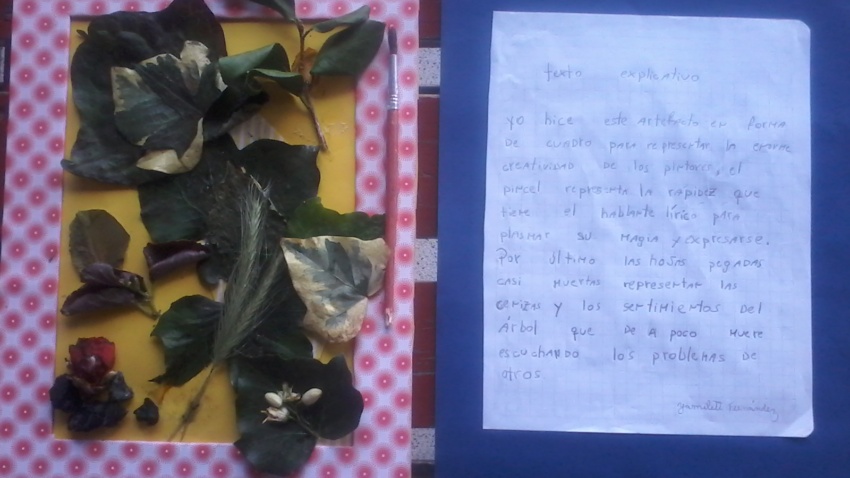 texto explicativo
yo hice este Artefacto en forma
de cuadro para representar la enorme
creatividad de los pintores, el
pincel representa la rapidez que
tiene el hablante lírico para
plasmar su magia y expresarse.
Por último las hojas pegadas
casi muertas representan las
cenizas y los sentimientos del
Árbol que de a poco muere
escuchando los problemas de
otros